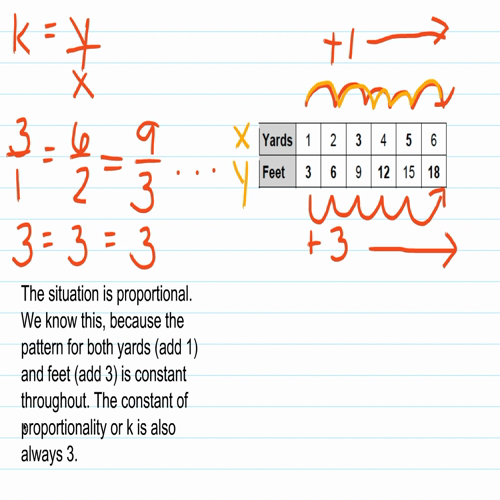 k = y/x
+1
3/1 = 6/2 = 9/3 ...
3 = 3 = 3
x Yards 1 2 3 4 5 6
y Feet 3 6 9 12 15 18
+3
The situation is proportional.
We know this, because the
pattern for both yards (add 1)
and feet (add 3) is constant
throughout. The constant of
proportionality or k is also
always 3.